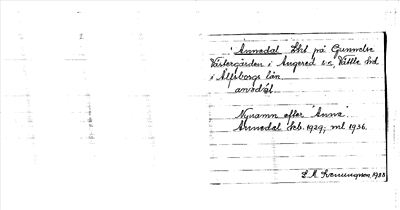 Annedal Lht på Gunnelse
Västergården i Angered sn, Vättle hd
i Älfsborgs län
anədɑl
Nynamn efter "Anna"
Annedal Lsb. 1929; ml 1936.
1933